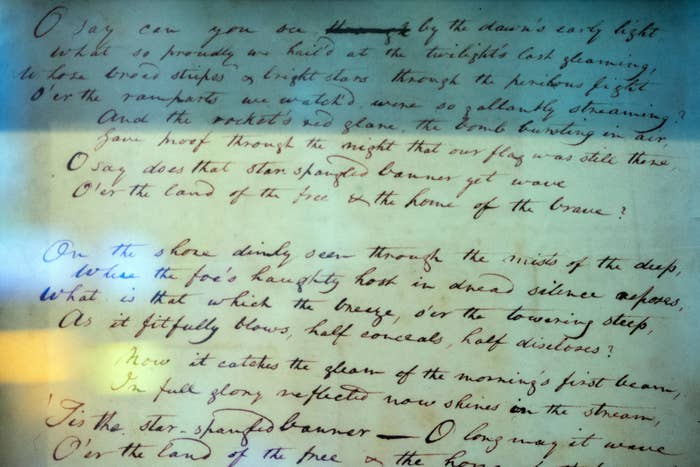 O say can you see through by the dawn's early light
What so proudly we hail'd at the twilight's last gleaming,
Whose broad stripes & bright stars through the perilous fight
O'er the ramparts we watch'd, were so gallantly streaming?
And the rocket's red glare, the bomb bursting in air,
Gave proof through the night that our flag was still there,
O say does that star-spangled banner yet wave
O'er the land of the free & the home of the brave?
On the shore dimly seen through the mists of the deep,
Where the foe's haughty host in dread silence reposes,
What is that which the breeze, o'er the towering steep,
As it fitfully blows, half conceals, half discloses?
Now it catches the gleam of the morning's first beam,
In full glory reflected now shines in the stream,
'Tis the star-spangled banner — O long may it wave
O'er the land of the free & the home